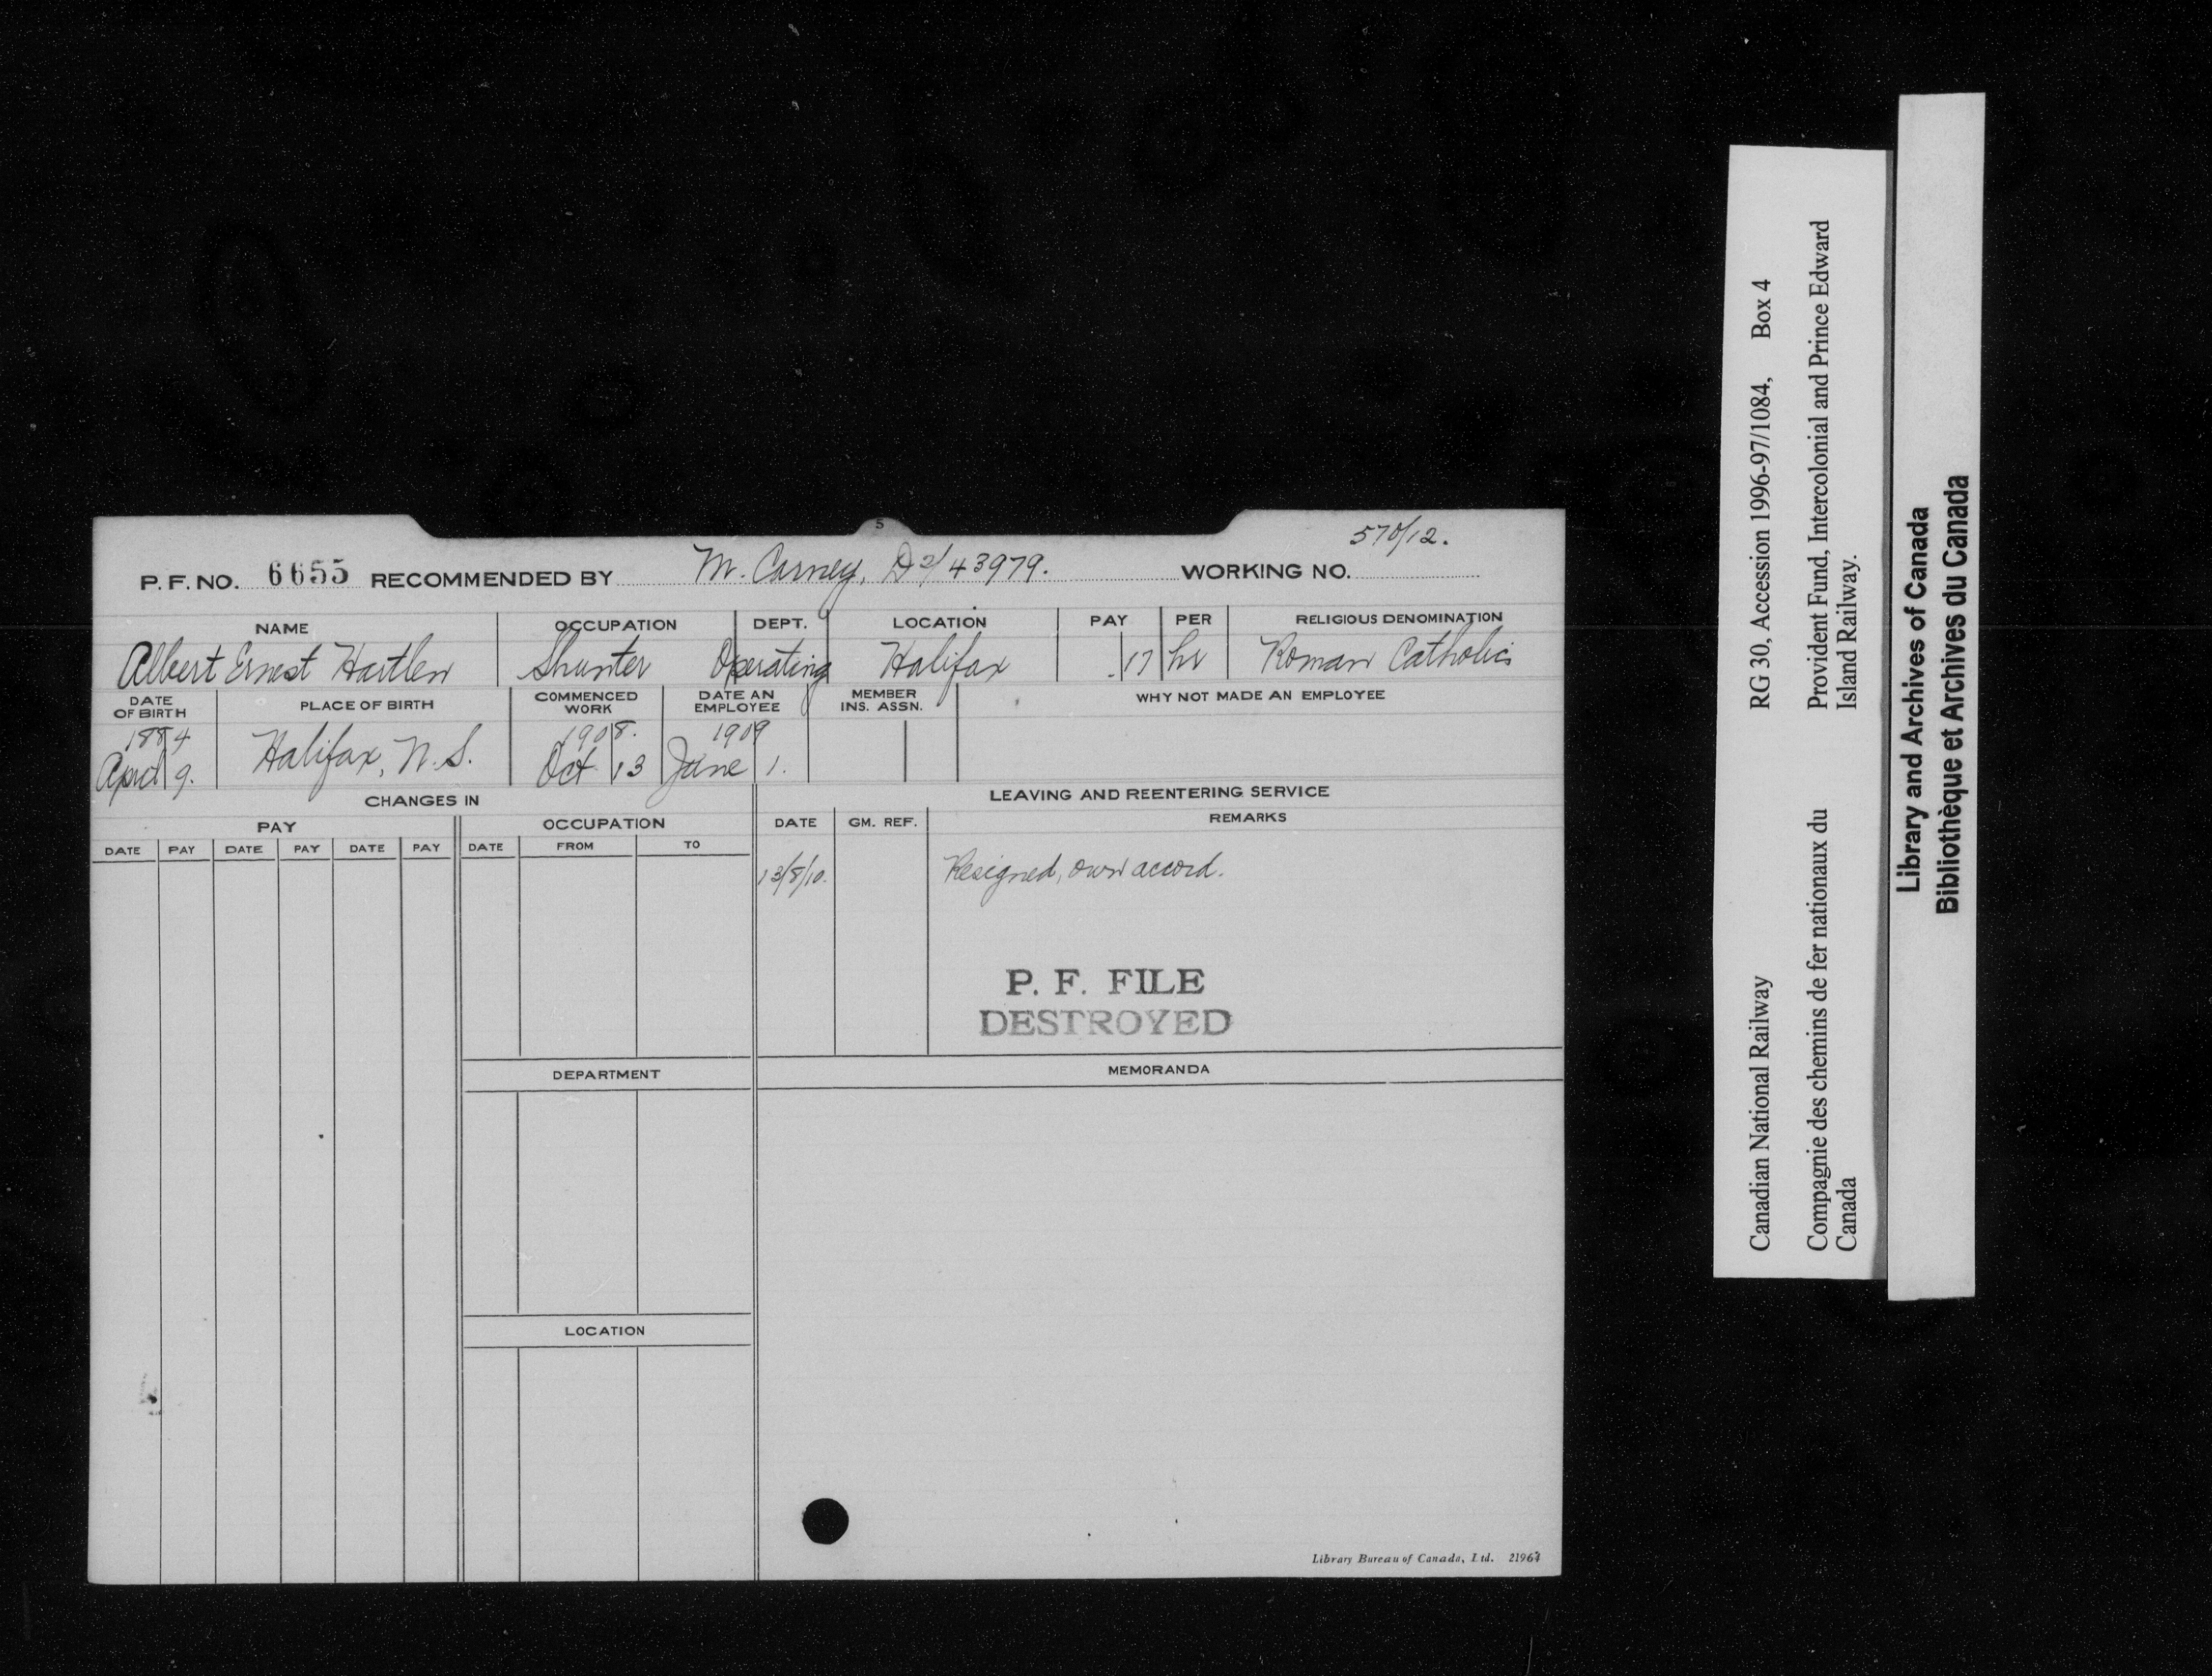 5
570/12.
P. F. NO. 6655 RECOMMENDED BY M. Carney, D2/43979. WORKING NO.
NAME OCCUPATION DEPT. LOCATION PAY PER RELIGIOUS DENOMINATION
Albert Ernest Hartlen Shunter Operating Halifax .17 hr Roman Catholic
DATE OF BIRTH PLACE OF BIRTH COMMENCED WORK DATE AN EMPLOYEE MEMBER INS. ASSN. WHY NOT MADE AN EMPLOYEE
1884 1908. 1909
April 9. Halifax, N.S. Oct 13 June 1.
CHANGES IN LEAVING AND REENTERING SERVICE
PAY OCCUPATION DATE GM. REF. REMARKS
DATE PAY DATE PAY DATE PAY DATE FROM TO
13/8/10. Resigned, own accord.
P. F. FILE
DESTROYED
DEPARTMENT MEMORANDA
LOCATION
Library Bureau of Canada, Ltd. 21964
Canadian National Railway RG 30, Accession 1996-97/1084, Box 4
Compagnie des chemins de fer nationaux du Provident Fund, Intercolonial and Prince Edward
Canada Island Railway.
Library and Archives of Canada
Bibliothèque et Archives du Canada